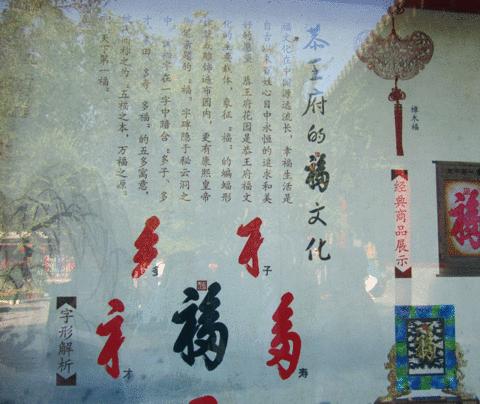 恭王府的福文化
福文化在中国源远流长，幸福生活是
自古以来百姓心目中永恒的追求和美
好的愿望。恭王府花园是恭王府福文
化的主要载体，象征“福”的蝙蝠形
遍布园内，更有康熙皇帝
“福”字碑隐于秘云洞之
中。在一字中暗合“多子、多
才、多田、多寿、多福”的五多寓意，
称之为“五福之本，万福之源。
天下第一福。
橡木福
经典商品展示
福
福
多
子
福
才
寿
字形解析